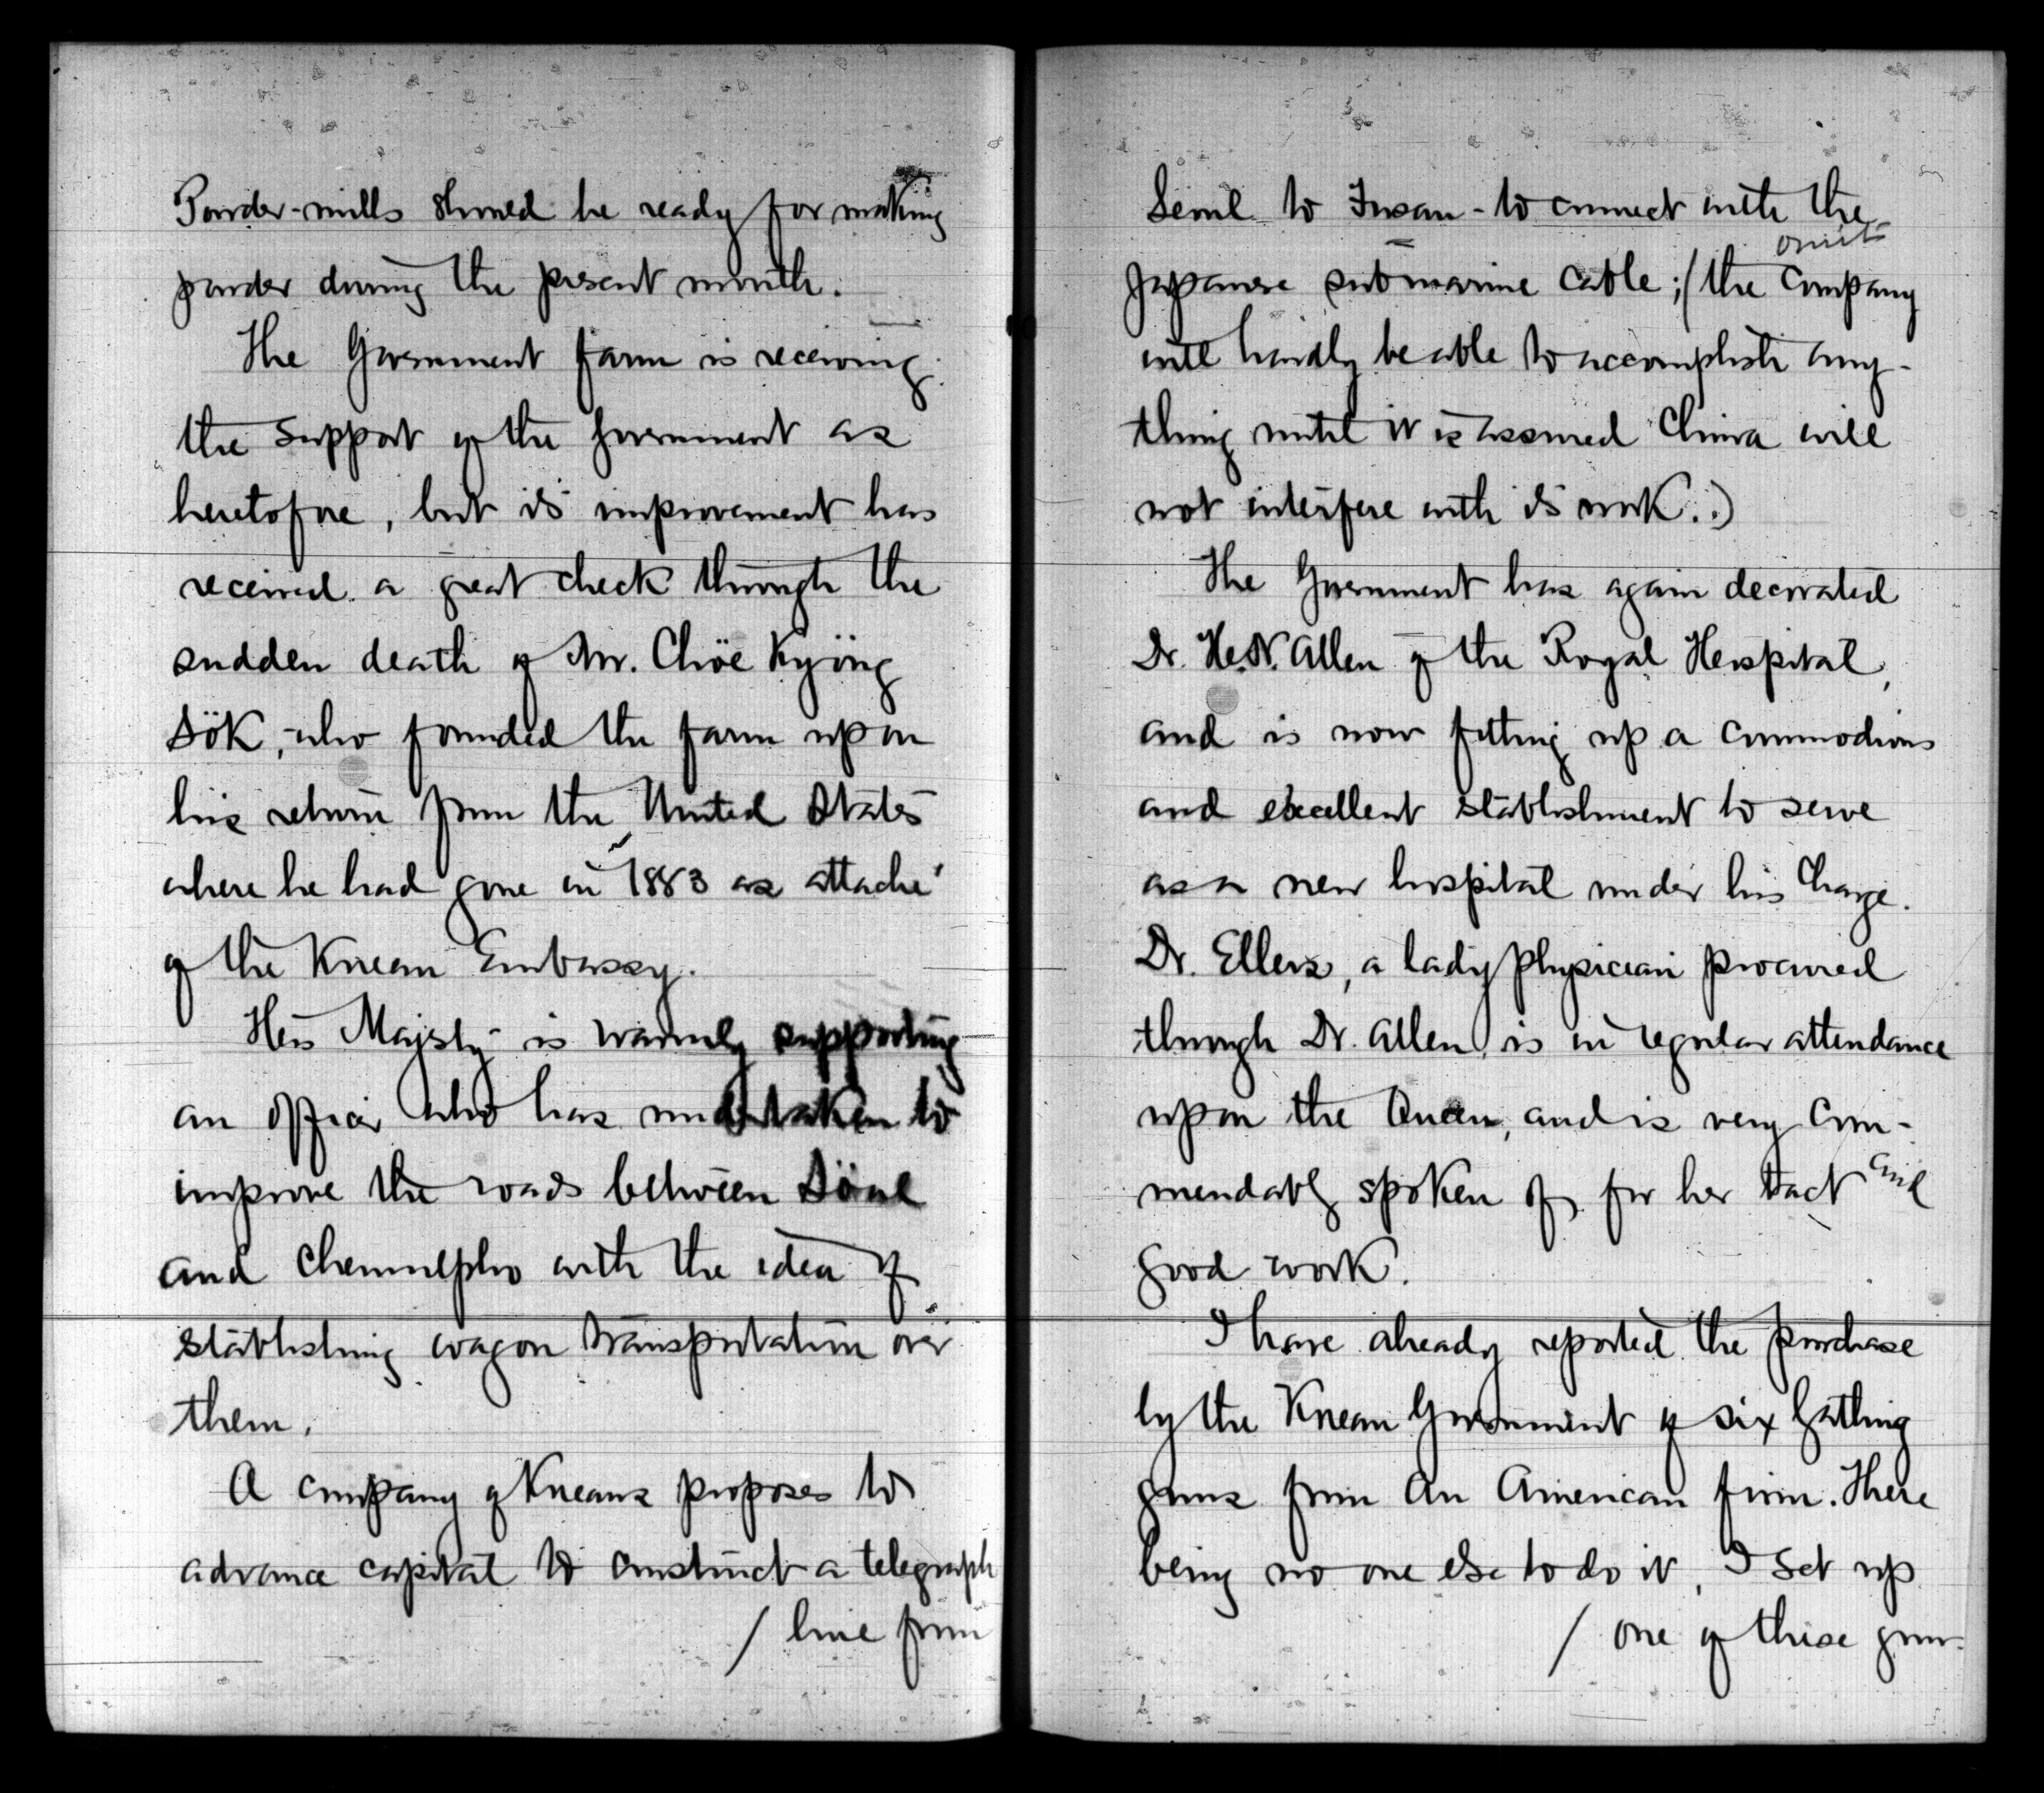 Powder-mills should be ready for making
powder during the present month.
The Government farm is receiving
the support of the Government as
heretofore, but its improvement has
received a great check through the
sudden death of Mr. Chöe Kyöng
Sök, who founded the farm upon
his return from the United States
where he had gone in 1883 as attaché
of the Korean Embassy.
His Majesty is warmly supporting
an officer who has undertaken to
improve the roads between Söul
and Chemulpho with the idea of
establishing wagon transportation over
them.
A company of Koreans proposes to
advance capital to construct a telegraph
/ line from
Seoul to Fusan - to connect with the
omit
Japanese submarine cable; (the company
will hardly be able to accomplish any-
thing until it is assured China will
not interfere with its work.)
The Government has again decorated
Dr. H. N. Allen of the Royal Hospital,
and is now fitting up a commodious
and excellent establishment to serve
as a new hospital under his charge.
Dr. Ellers, a lady physician procured
through Dr. Allen, is in regular attendance
upon the Queen, and is very com-
mendably spoken of for her tact and
good work.
I have already reported the purchase
by the Korean Government of six Gatling
guns from an American firm. There
being no one else to do it, I set up
/ one of these guns